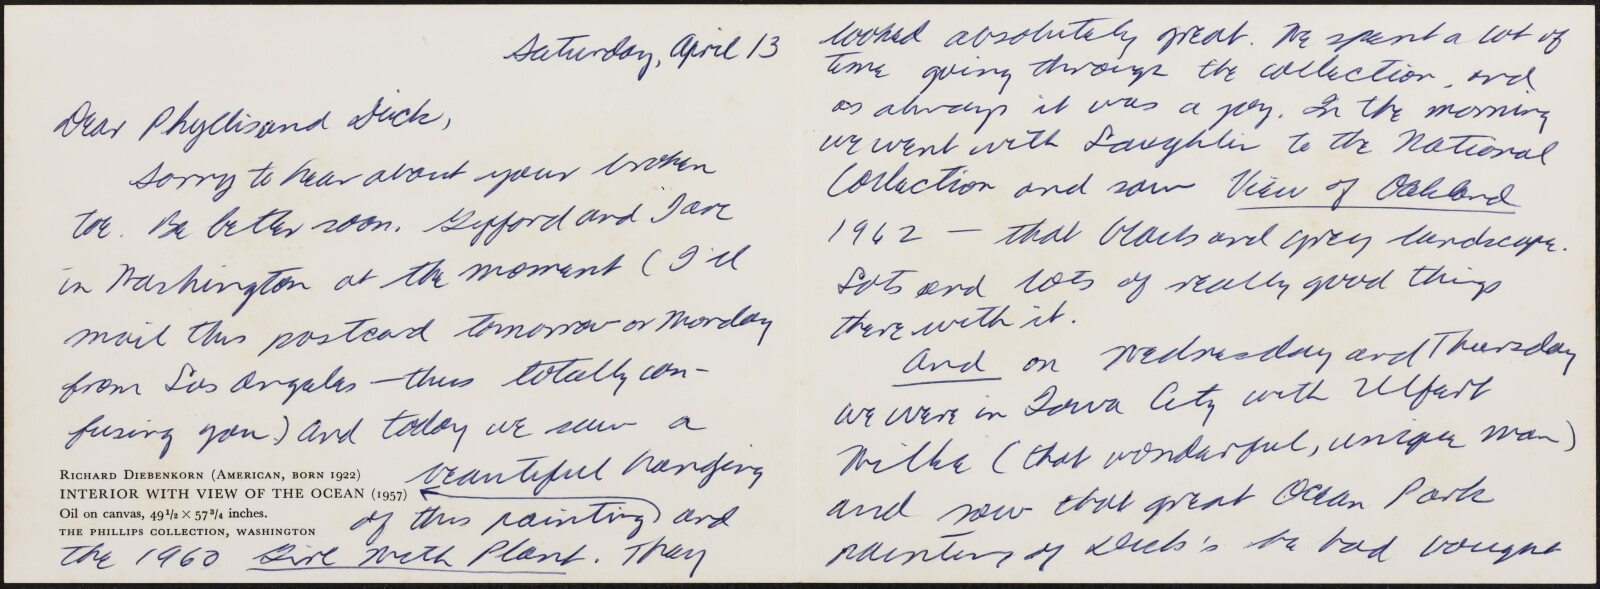 Saturday, April 13
Dear Phyllis and Dick,
Sorry to hear about your broken
toe. Be better soon. Gifford and I are
in Washington at the moment (I'll
mail this postcard tomorrow or Monday
from Los Angeles — thus totally con-
fusing you) And today we saw a
beautiful hanging
of this painting) and
the 1960 Girl With Plant. They
RICHARD DIEBENKORN (AMERICAN, BORN 1922)
INTERIOR WITH VIEW OF THE OCEAN (1957)
Oil on canvas, 49 1/2 × 57 3/4 inches.
THE PHILLIPS COLLECTION, WASHINGTON
looked absolutely great. We spent a lot of
time going through the collection, and
as always it was a joy. In the morning
we went with Laughlin to the National
Collection and saw View of Oakland
1962 — that black and grey landscape.
Lots and lots of really good things
there with it.
And on Wednesday and Thursday
we were in Iowa City with Ulfert
Wilke (that wonderful, unique man)
and saw that great Ocean Park
painting of Dick's he had bought